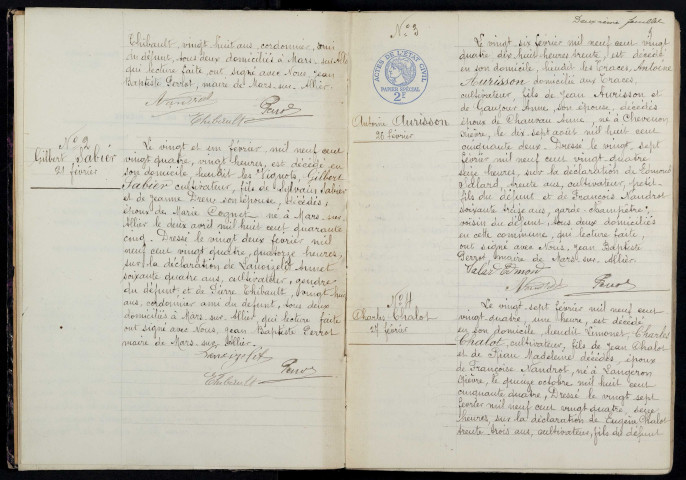 Thibault, vingt huit ans, cordonnier, ami
du défunt, tous deux domiciliés à Mars, sur Allier
qui lecture faite, ont signé avec Nous, Jean
Baptiste Perrot, maire de Mars-sur-Allier.
Nandrot
Thibault
Perrot
N° 2
Gilbert Sabier
21 février
Le vingt et un février mil neuf cent
vingt quatre, vingt heures, est décédé en
son domicile, lieudit les Vignots, Gilbert
Sabier cultivateur, fils de Sylvain Sabier
et de Jeanne son épouse, décédés,
époux de Marie né à Mars-sur
Allier le deux avril mil huit cent quarante
cinq. Dressé le vingt deux février mil
neuf cent vingt quatre, quatorze heures,
sur la déclaration de Annet
soixante quatre ans, cultivateur, gendre
du défunt et de Pierre Thibault, vingt huit
ans, cordonnier ami du défunt, tous deux
domiciliés à Mars-sur-Allier, qui lecture faite
ont signé avec Nous, Jean Baptiste Perrot
maire de Mars-sur-Allier.
Thibault
Perrot
Deuxième feuillet
N° 3
ACTES DE L'ÉTAT CIVIL
PAPIER SPÉCIAL
2F
Antoine Aurisson
26 février
Le vingt six février mil neuf cent vingt
quatre dix huit heures trente, est décédé
en son domicile, lieudit les Traces, Antoine
Aurisson domicilié aux Traces,
cultivateur, fils de Jean Aurisson et
de Anne, son épouse, décédés
époux de Anne, né à Chevenon
Nièvre, le dix sept août mil huit cent
cinquante deux. Dressé le vingt sept
février mil neuf cent vingt quatre
seize heures, sur la déclaration de Edmond
trente ans, cultivateur, petit-
fils du défunt et de François Nandrot
soixante treize ans, garde-champêtre,
voisin du défunt, tous deux domiciliés
en cette commune, qui lecture faite,
ont signé avec Nous, Jean Baptiste
Perrot, maire de Mars-sur-Allier.
Edmond
Nandrot
Perrot
N° 4
Charles Chalot
27 février
Le vingt sept février mil neuf cent
vingt quatre, une heure, est décédé
en son domicile lieudit Limones, Charles
Chalot, cultivateur, fils de Jean Chalot
et de Madeleine décédés, époux
de Françoise Nandrot, né à Langeron
Nièvre, le quinze octobre mil huit cent
cinquante quatre. Dressé le vingt sept
février mil neuf cent vingt quatre, seize
heures, sur la déclaration de Eugène Chalot
trente trois ans, cultivateur, fils du défunt